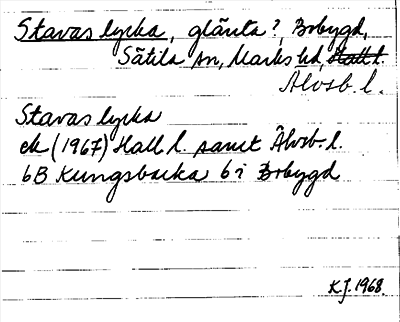 Stavas lycka, glänta?, Bobygd,
Sätila sn, Marks hd, Hall l.
Älvsb. l.
Stavas lycka
ek (1967) Hall l. samt Älvsb. l.
6B Kungsbacka 6i Bobygd
K.J. 1968.